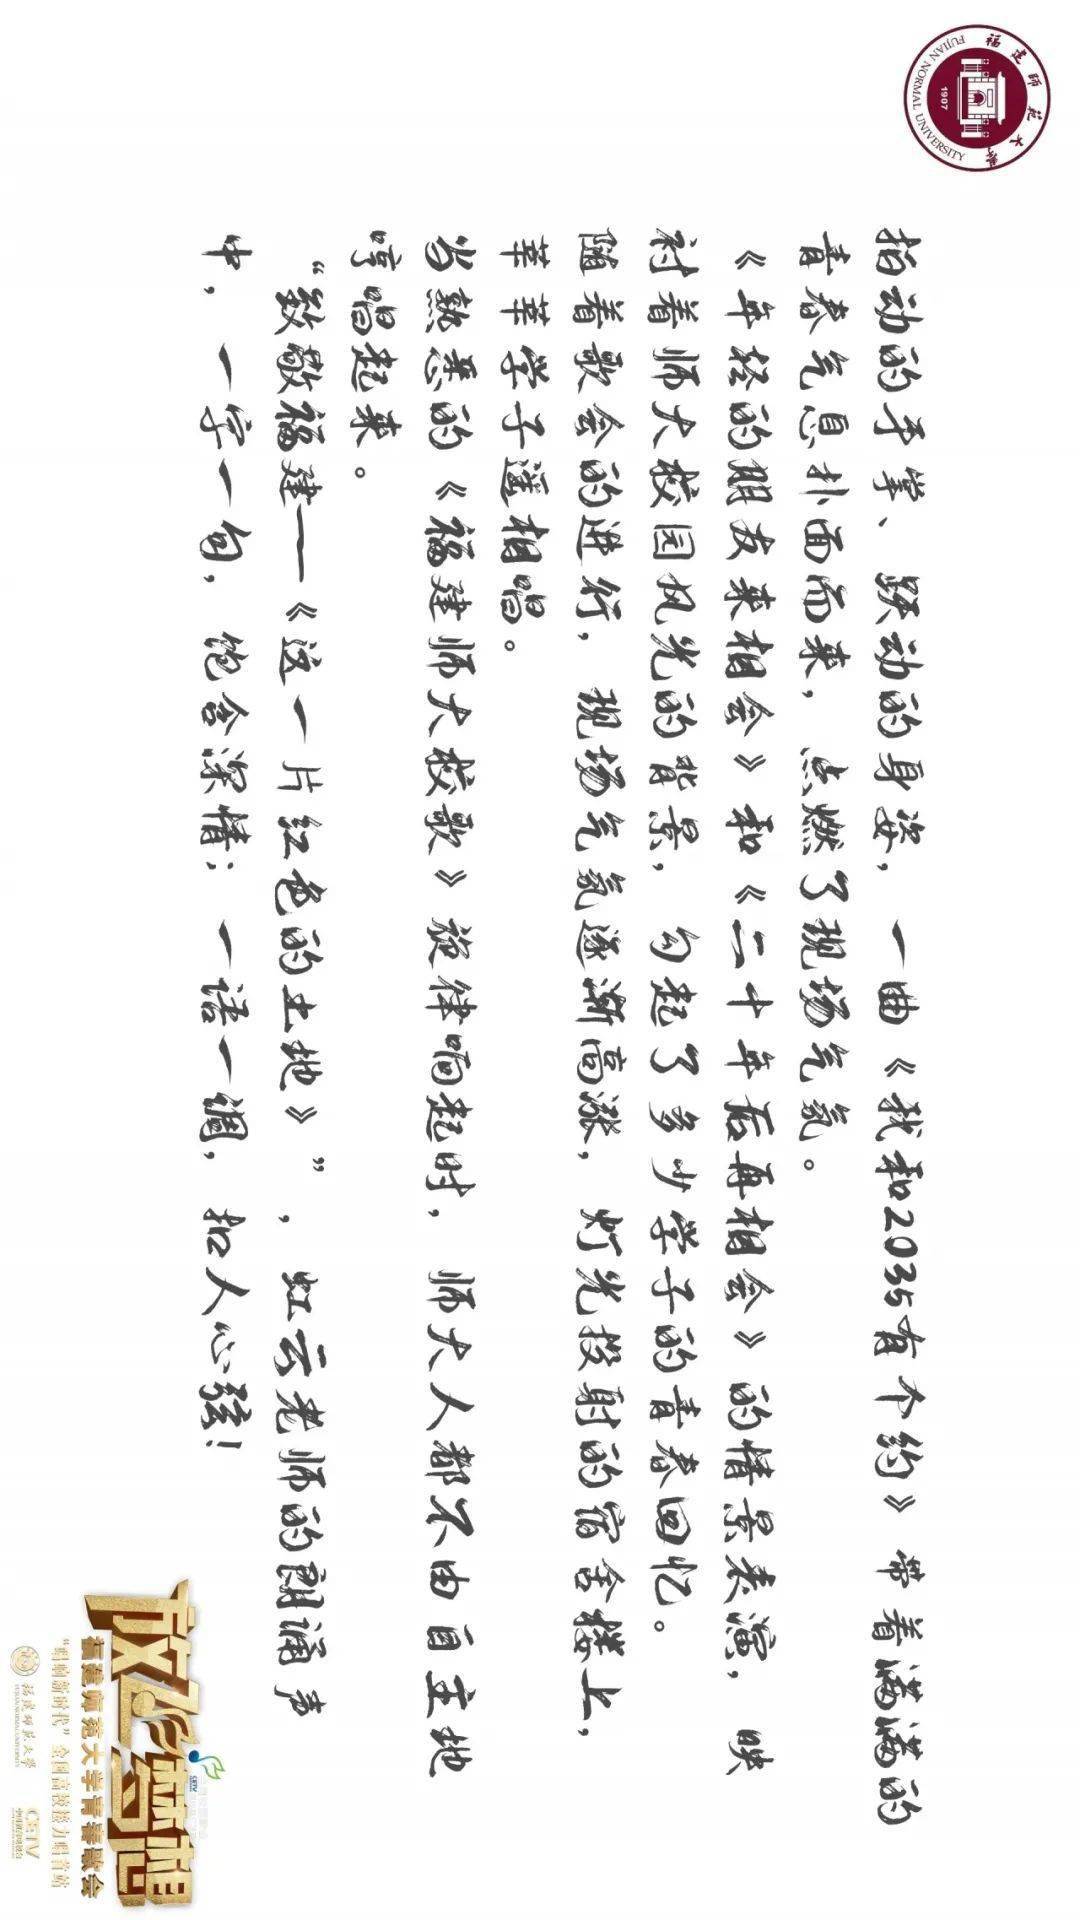 福建师范大学
FUJIAN NORMAL UNIVERSITY
1907
拍动的手掌、跃动的身姿，一曲《我和2035有个约》带着满满的
青春气息扑面而来，点燃了现场气氛。
《年轻的朋友来相会》和《二十年后再相会》的情景表演，映
衬着师大校园风光的背景，勾起了多少学子的青春回忆。
随着歌会的进行，现场气氛逐渐高涨，灯光投射的宿舍楼上，
莘莘学子遥相唱。
当熟悉的《福建师大校歌》旋律响起时，师大人都不由自主地
哼唱起来。
“致敬福建——《这一片红色的土地》”，虹云老师的朗诵声
中，一字一句，饱含深情；一语一调，扣人心弦！
放飞梦想
福建师范大学青春歌会
“唱响新时代”全国高校接力唱首站
福建师范大学
CETV